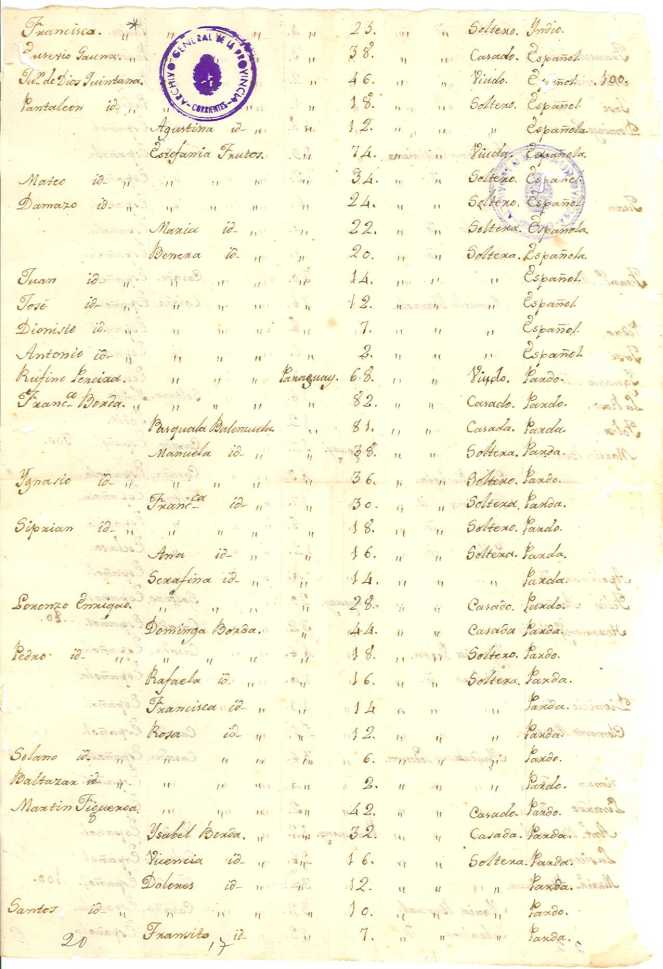 Francisca. * " " " " 25. " " Soltero. Yndio.
Eusevio Gauna. " " " 38. " " Casado. Español.
Juº. de Dios Quintana. " " 46. " " Viudo. Español. 100.
ARCHIVO GENERAL DE LA PROVINCIA CORRIENTES
Pantaleon id " " 18. " " Soltero. Español.
Agustina id " " 12. " " " Española.
Estefania Frutos. " 74. " " Viuda. Española.
Mateo id " " " " " 34. " " Soltero. Español.
Damazo id " " " " " 24. " " Soltero. Español.
Maria id " " 22. " " Soltera. Española.
Benera id " " 20. " " Soltera. Española.
Juan id " " " " " 14. " " " Español.
José id " " " " " 12. " " " Español.
Dionisio id " " " " " 7. " " " Español.
Antonio id " " " " " 2. " " " Español.
Rufino Pereira. " " " Paraguay. 68. " " Viudo. Pardo.
Francº Borda. " " " " " 82. " " Casado. Pardo.
Pasquala Balenzuela " " 81. " " Casada. Parda
Manuela id " " 38. " " Soltera. Parda.
Ygnasio id " " " " " 36. " " Soltero. Pardo.
Francca id " " 30. " " Soltera. Parda.
Siprian id " " " " " 18. " " Soltero. Pardo.
Ana id " " 16. " " Soltera. Parda.
Serafina id " " 14. " " " Parda.
Lorenzo Enrique. " " " " 28. " " Casado. Pardo.
Dominga Borda. " " 44. " " Casada Parda.
Pedro id. " " " " " 18. " " Soltero. Pardo.
Rafaela id " " 16. " " Soltera. Parda.
Francisca id " " 14 " " " Parda.
Rosa id " " 12. " " " Parda.
Solano id. " " " " " 6. " " " Pardo.
Baltazar id " " " " " 2. " " " Pardo.
Martin Figueroa. " " " " 42. " " Casado. Pardo.
Ysabel Borda. " " 32. " " Casada. Parda.
Vicencia id " " 16. " " Soltera. Parda.
Dolores id " " 12. " " " Parda.
Santos id " " " " " 10. " " " Pardo.
20 Transito, 17 id " " 7. " " " Parda.